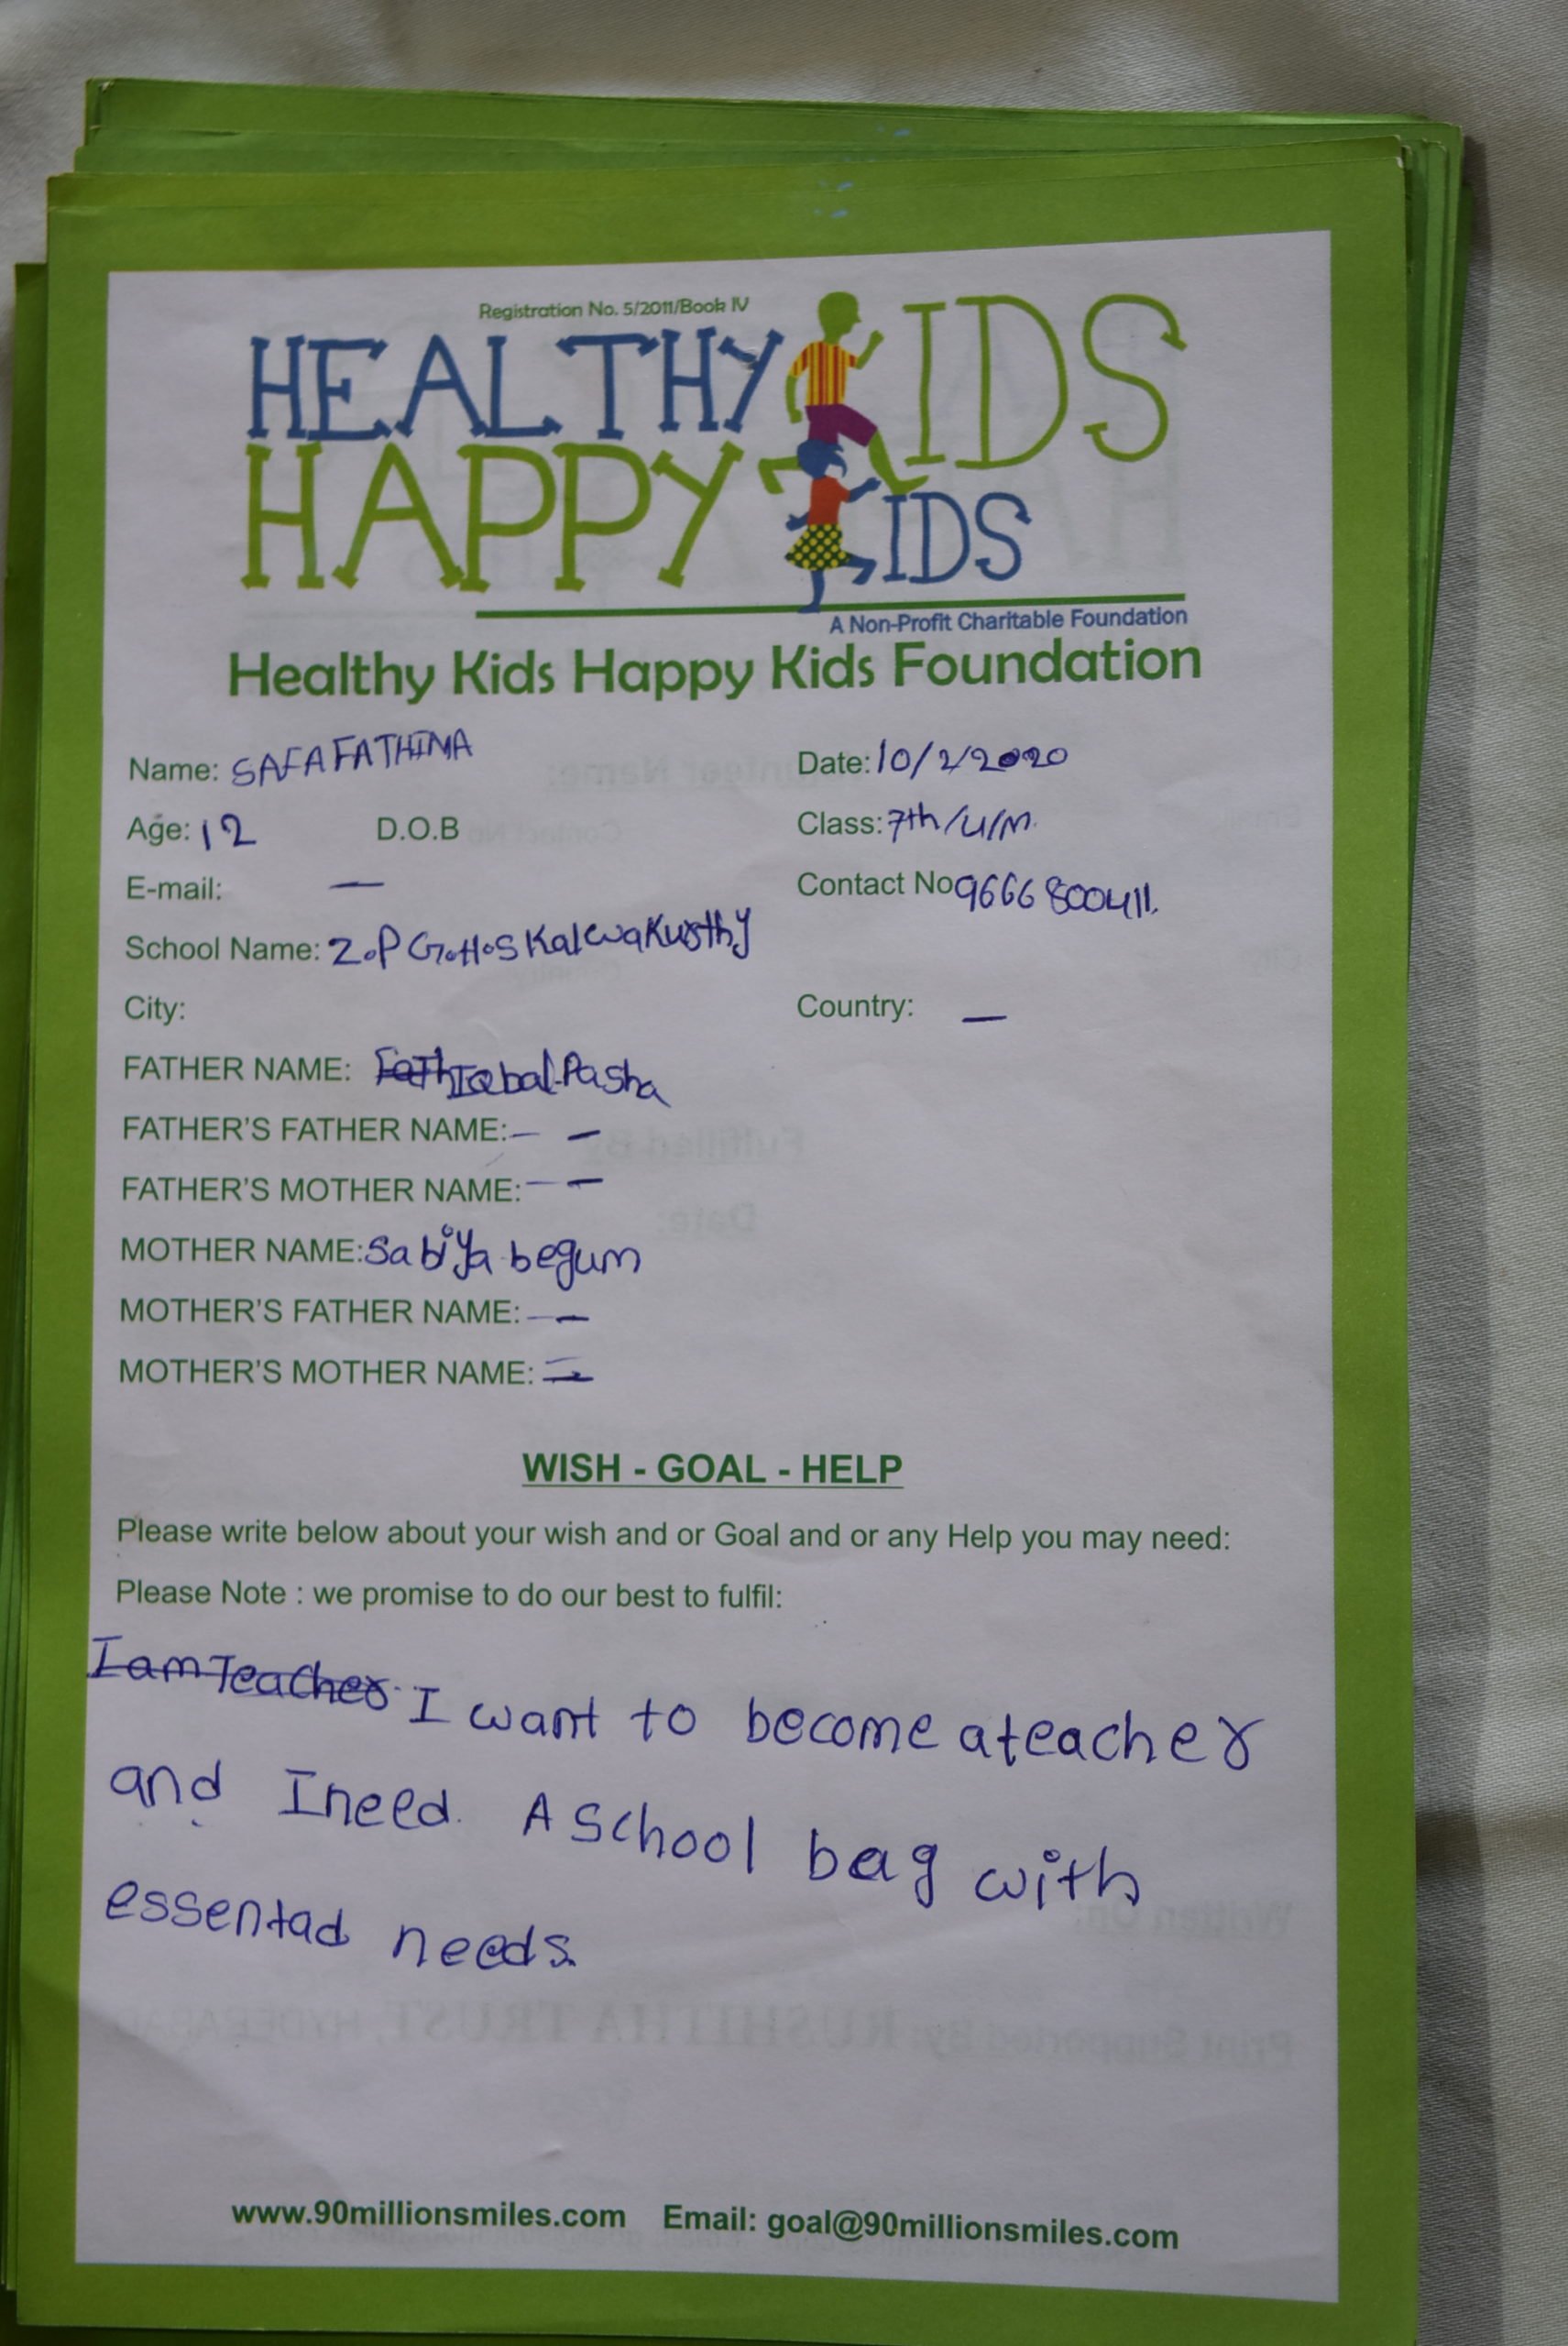 Registration No. 5/2011/Book IV
HEALTHY KIDS
HAPPY KIDS
A Non-Profit Charitable Foundation
Healthy Kids Happy Kids Foundation
Name: SAFA FATHIMA Date: 10/2/2020
Age: 12 D.O.B Class: 7th/U/M.
E-mail: — Contact No 9666800411.
School Name: Z.P G.H.S Kalwakurthy
City: Country: —
FATHER NAME: Iqbal Pasha
FATHER'S FATHER NAME: — —
FATHER'S MOTHER NAME: — —
MOTHER NAME: Sabiya begum
MOTHER'S FATHER NAME: — —
MOTHER'S MOTHER NAME: —
WISH - GOAL - HELP
Please write below about your wish and or Goal and or any Help you may need:
Please Note : we promise to do our best to fulfil:
I am Teacher. I want to become a teacher
and I need. A school bag with
essentad needs.
www.90millionsmiles.com Email: goal@90millionsmiles.com